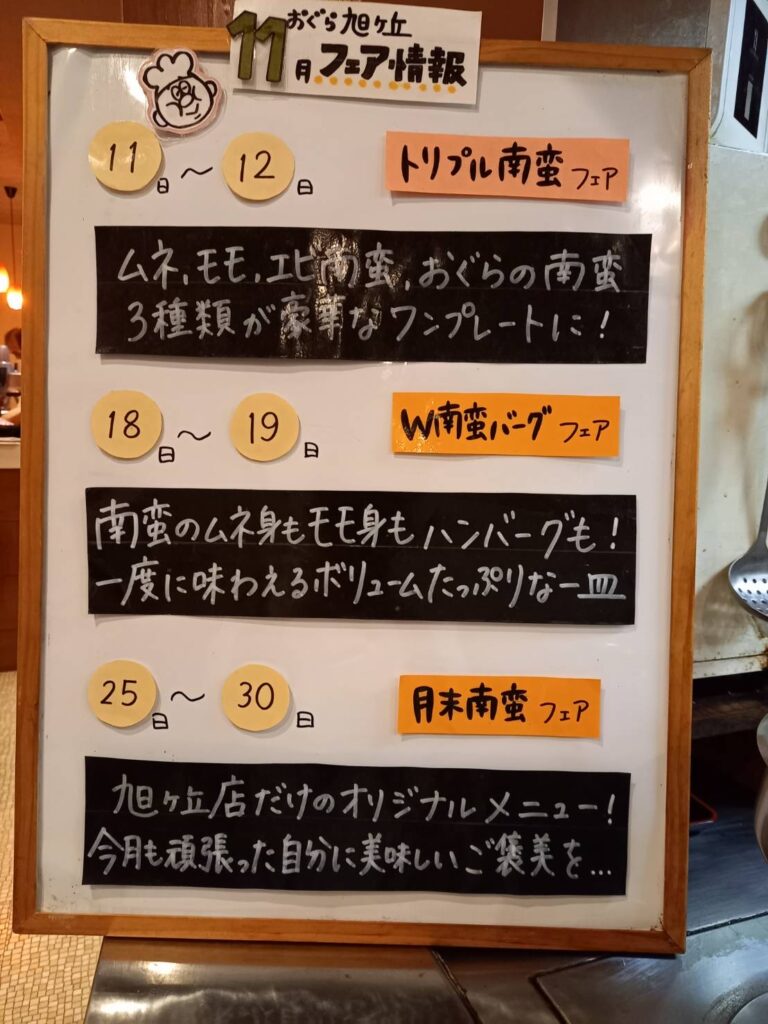 おぐら旭ヶ丘
11月フェア情報
11日～12日 トリプル南蛮フェア
ムネ,モモ,エビ南蛮,おぐらの南蛮
3種類が豪華なワンプレートに!
18日～19日 W南蛮バーグフェア
南蛮のムネ身もモモ身もハンバーグも!
一度に味わえるボリュームたっぷりな一皿
25日～30日 月末南蛮フェア
旭ヶ丘店だけのオリジナルメニュー!
今月も頑張った自分に美味しいご褒美を...